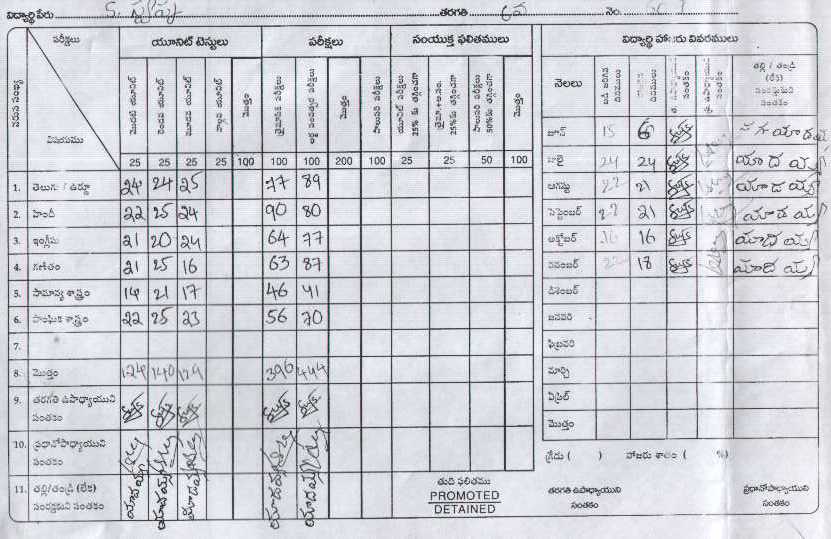 విద్యార్థి పేరు S. పుష్ప తరగతి 6వ నెం.
పరీక్షలు యూనిట్ టెస్టులు పరీక్షలు సంయుక్త ఫలితములు
వరుస సంఖ్య విషయము మొదటి యూనిట్ రెండవ యూనిట్ మూడవ యూనిట్ నాల్గవ యూనిట్ మొత్తం త్రైమాసిక పరీక్షలు అర్ధ సంవత్సర పరీక్షలు మొత్తం వార్షిక పరీక్షలు యూనిట్ పరీక్షలు 25% కు తగ్గించగా త్రైమా.+అ.సం. 25% కు తగ్గించగా వార్షిక పరీక్షలు 50% కు తగ్గించగా మొత్తం
25 25 25 25 100 100 100 200 100 25 25 50 100
1. తెలుగు / ఉర్దూ 24 24 25 77 89
2. హిందీ 22 25 24 90 80
3. ఇంగ్లీషు 21 20 24 64 77
4. గణితం 21 25 16 63 87
5. సామాన్య శాస్త్రం 14 21 17 46 41
6. సాంఘిక శాస్త్రం 22 25 23 56 70
7.
8. మొత్తం 124 140 129 396 444
9. తరగతి ఉపాధ్యాయుని సంతకం
10. ప్రధానోపాధ్యాయుని సంతకం
11. తల్లి/తండ్రి (లేక) సంరక్షకుని సంతకం యాదయ్య యాదయ్య యాదయ్య యాదయ్య యాదయ్య
తుది ఫలితము
PROMOTED
DETAINED
విద్యార్థి హాజరు వివరములు
నెలలు తల్లి / తండ్రి (లేక) సంరక్షకుని సంతకం
జూన్ 15 6
జులై 24 24 యాదయ్య
ఆగష్టు 22 21 యాదయ్య
సెప్టెంబర్ 22 21 యాదయ్య
అక్టోబర్ 16 16 యాదయ్య
నవంబర్ 22 18 యాదయ్య
డిశెంబర్
జనవరి
ఫిబ్రవరి
మార్చి
ఏప్రిల్
మొత్తం
గ్రేడు ( ) హాజరు శాతం ( %)
తరగతి ఉపాధ్యాయుని సంతకం ప్రధానోపాధ్యాయుని సంతకం